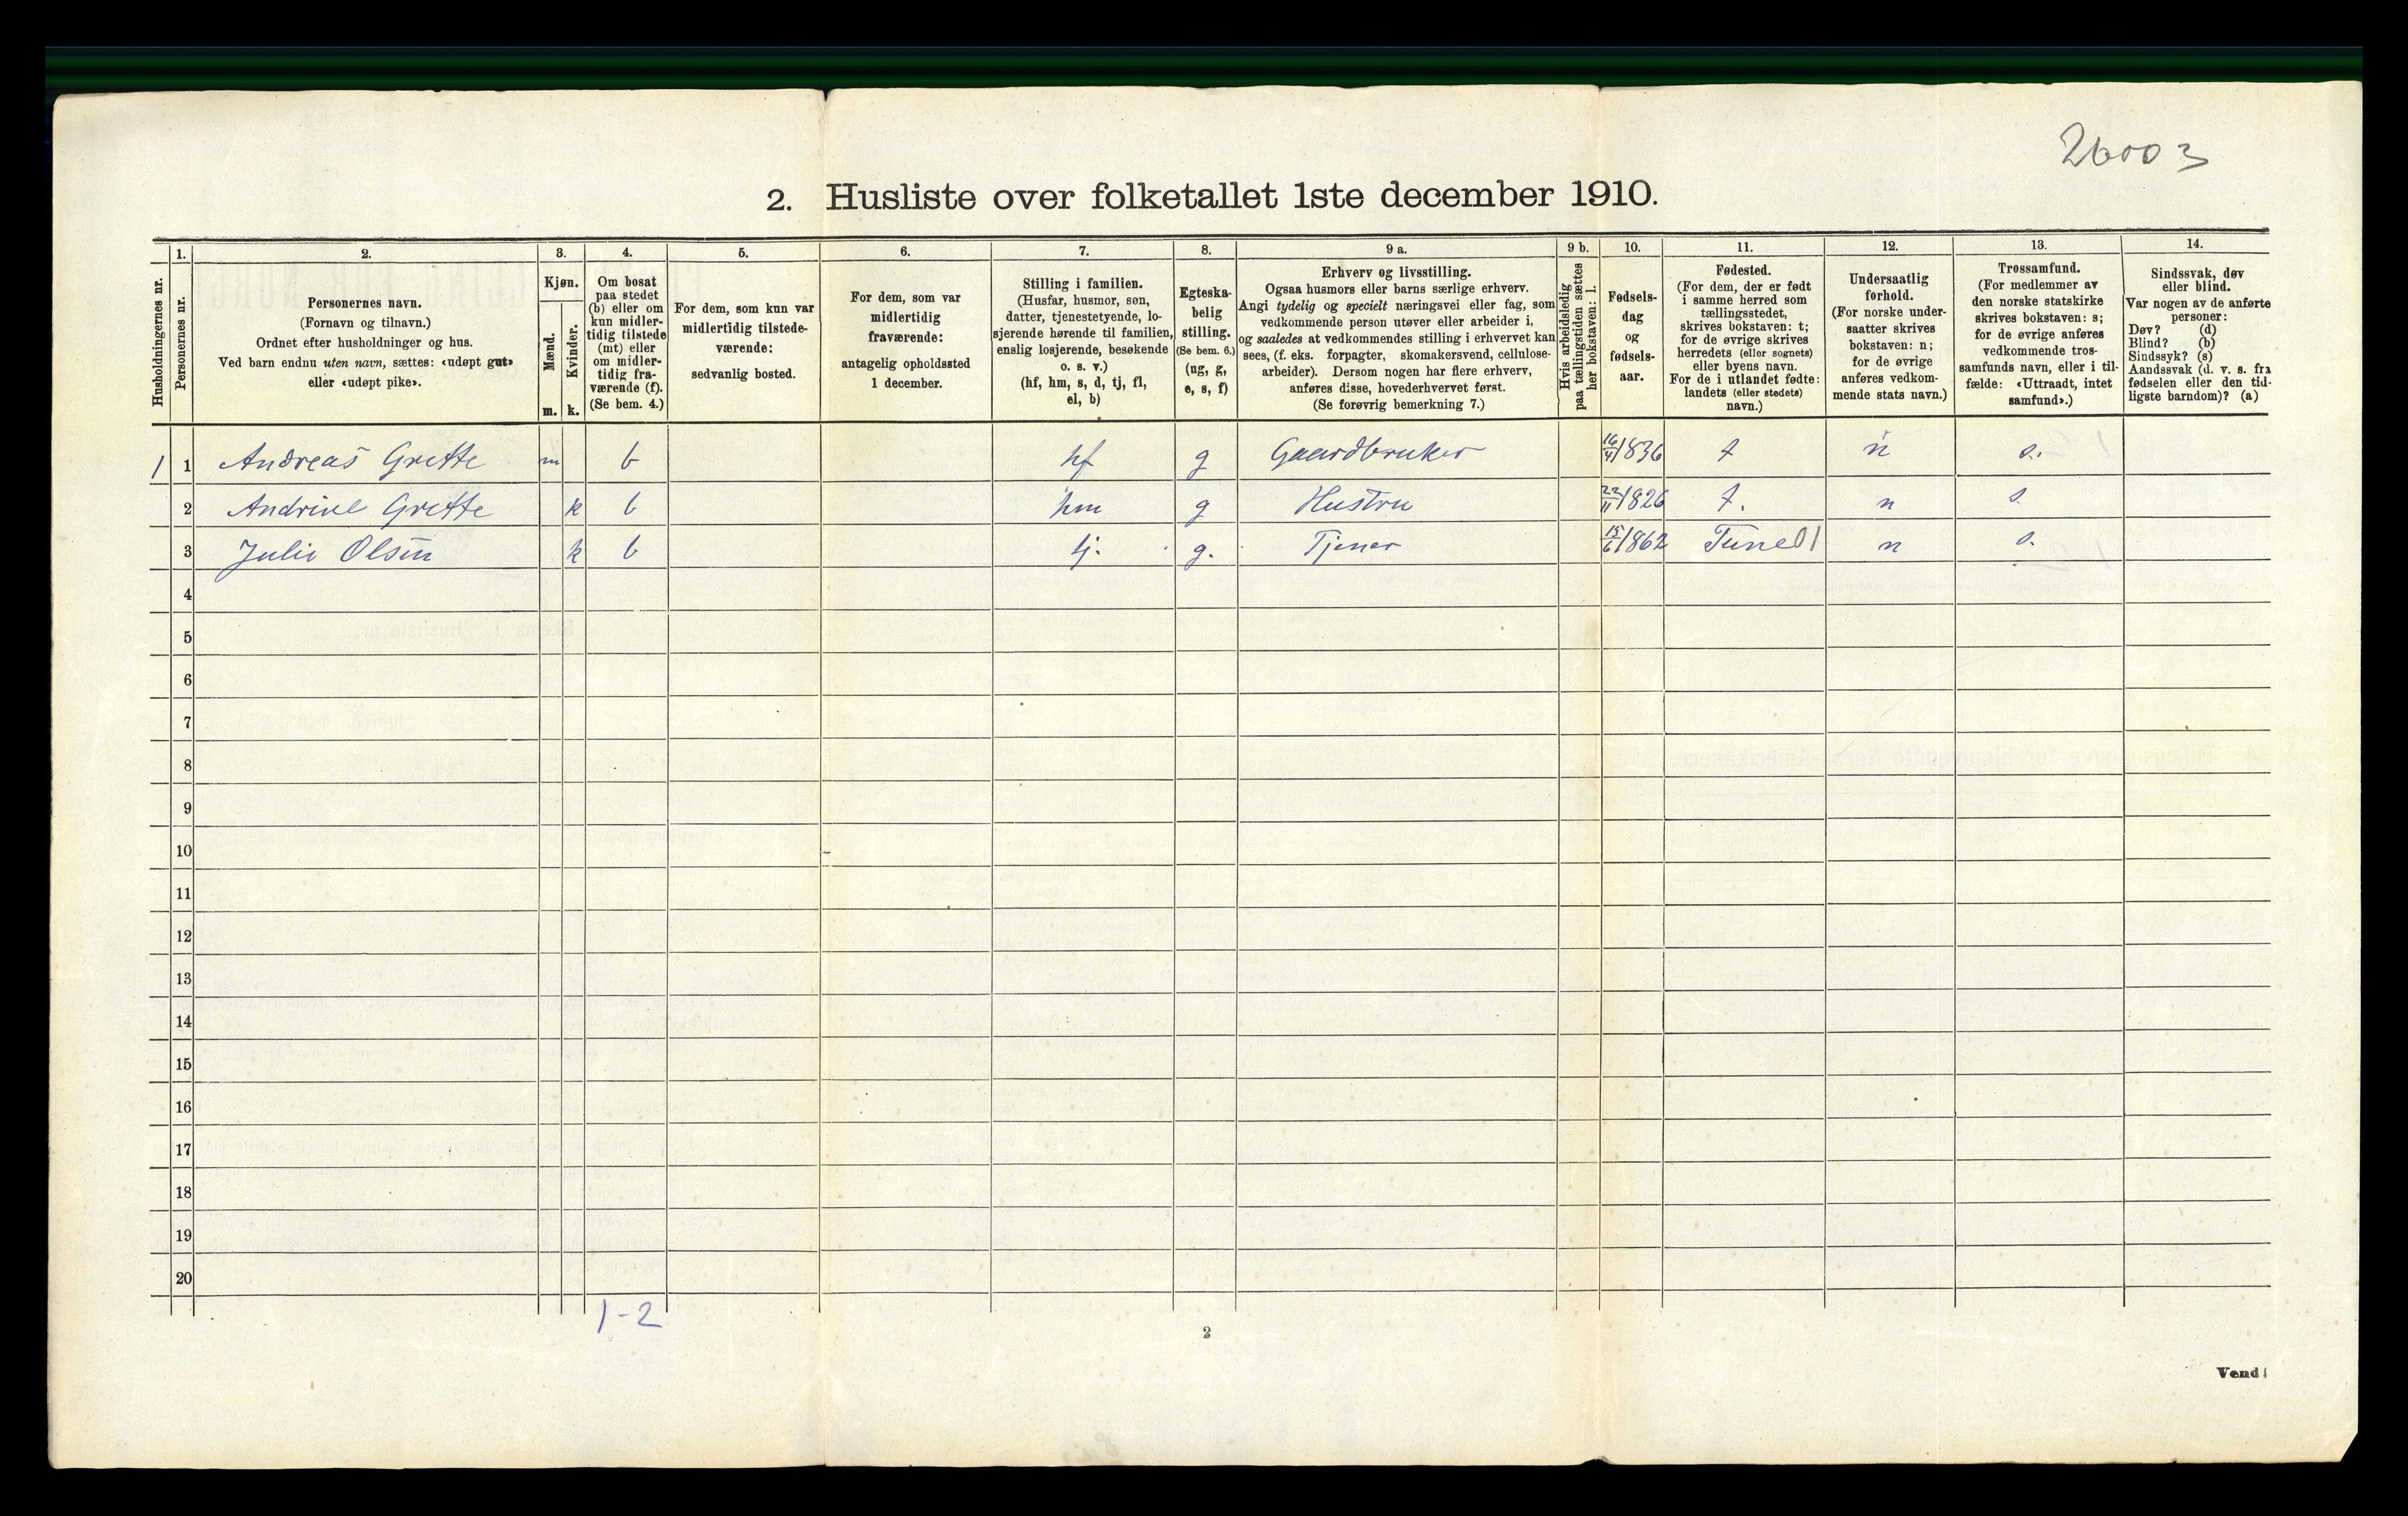 26003
2. Husliste over folketallet 1ste december 1910.
Husholdningernes nr.
1.
Personernes nr.
2.
Personernes navn.
(Fornavn og tilnavn.)
Ordnet efter husholdninger og hus.
Ved barn endnu uten navn, sættes: «udøpt gut»
eller «udøpt pike».
3.
Kjøn.
Mænd.
Kvinder.
m. k.
4.
Om bosat
paa stedet
(b) eller om
kun midler-
tidig tilstede
(mt) eller
om midler-
tidig fra-
værende (f).
(Se bem. 4.)
5.
For dem, som kun var
midlertidig tilstede-
værende:
sedvanlig bosted.
6.
For dem, som var
midlertidig
fraværende:
antagelig opholdssted
1 december.
7.
Stilling i familien.
(Husfar, husmor, søn,
datter, tjenestetyende, lo-
sjerende hørende til familien,
enslig losjerende, besøkende
o. s. v.)
(hf, hm, s, d, tj, fl,
el, b)
8.
Egteska-
belig
stilling.
(Se bem. 6.)
(ug, g,
e, s, f)
9 a.
Erhverv og livsstilling.
Ogsaa husmors eller barns særlige erhverv.
Angi tydelig og specielt næringsvei eller fag, som
vedkommende person utøver eller arbeider i,
og saaledes at vedkommendes stilling i erhvervet kan
sees, (f. eks. forpagter, skomakersvend, cellulose-
arbeider). Dersom nogen har flere erhverv,
anføres disse, hovederhvervet først.
(Se forøvrig bemerkning 7.)
9 b.
Hvis arbeidsledig
paa tællingstiden sættes
her bokstaven: l.
10.
Fødsels-
dag
og
fødsels-
aar.
11.
Fødested.
(For dem, der er født
i samme herred som
tællingsstedet,
skrives bokstaven: t;
for de øvrige skrives
herredets (eller sognets)
eller byens navn.
For de i utlandet fødte:
landets (eller stedets)
navn.)
12.
Undersaatlig
forhold.
(For norske under-
saatter skrives
bokstaven: n;
for de øvrige
anføres vedkom-
mende stats navn.)
13.
Trossamfund.
(For medlemmer av
den norske statskirke
skrives bokstaven: s;
for de øvrige anføres
vedkommende tros-
samfunds navn, eller i til-
fælde: «Uttraadt, intet
samfund».)
14.
Sindssvak, døv
eller blind.
Var nogen av de anførte
personer:
Døv? (d)
Blind? (b)
Sindssyk? (s)
Aandssvak (d. v. s. fra
fødselen eller den tid-
ligste barndom)? (a)
1 1 Andreas Grette m b hf g Gaardbruker 16/4 1836 t n s.
2 Andrine Grette k b hm g Hustru 22/11 1826 t. n s
3 Julie Olsen k b tj. g. Tjener 15/6 1862 Tune 01 n s.
4
5
6
7
8
9
10
11
12
13
14
15
16
17
18
19
20
1-2
2
Vend!